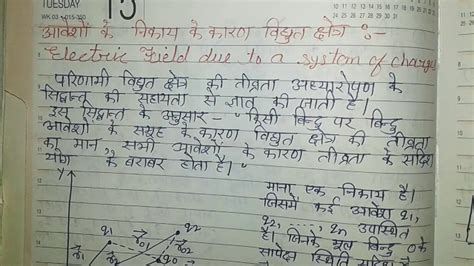 TUESDAY
WK 03 • 015-350
15
आवेशों के निकाय के कारण विद्युत क्षेत्र :-
Electric Field due to a system of charge
परिणामी विद्युत क्षेत्र की तीव्रता अध्यारोपण के
सिद्धान्त की सहायता से ज्ञात की जाती है।
इस सिद्धान्त के अनुसार - "किसी बिन्दु पर बिन्दु
आवेशों के समूह के कारण विद्युत क्षेत्र की तीव्रता
का मान, सभी आवेशों के कारण तीव्रता के सदिश
योग के बराबर होता है।"
माना एक निकाय है।
जिसमें कई आवेश q1,
q2, ......, qn उपस्थित
है। जिनके मूल बिन्दु O के
सापेक्ष स्थिती सदिश
y
q1
r01
q2
r1
r02